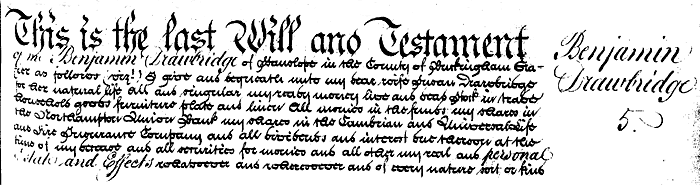 This is the last Will and Testament
of me Benjamin Drawbridge of Hanslope in the County of Buckingham Gra-
zier as follows (viz:) I give and bequeath unto my dear wife Susan Drawbridge
for her natural life All and singular my ready money live and dead stock in trade
household goods furniture plate and linen All monies in the funds my shares in
the Northampton Union Bank my shares in the Cambrian and Universal Life
and Fire Insurance Company and all dividends and interest due thereon at the
time of my decease and all securities for monies and all other my real and personal
Estate and Effects whatsoever and wheresoever and of every nature sort or kind
Benjamin
Drawbridge
5.